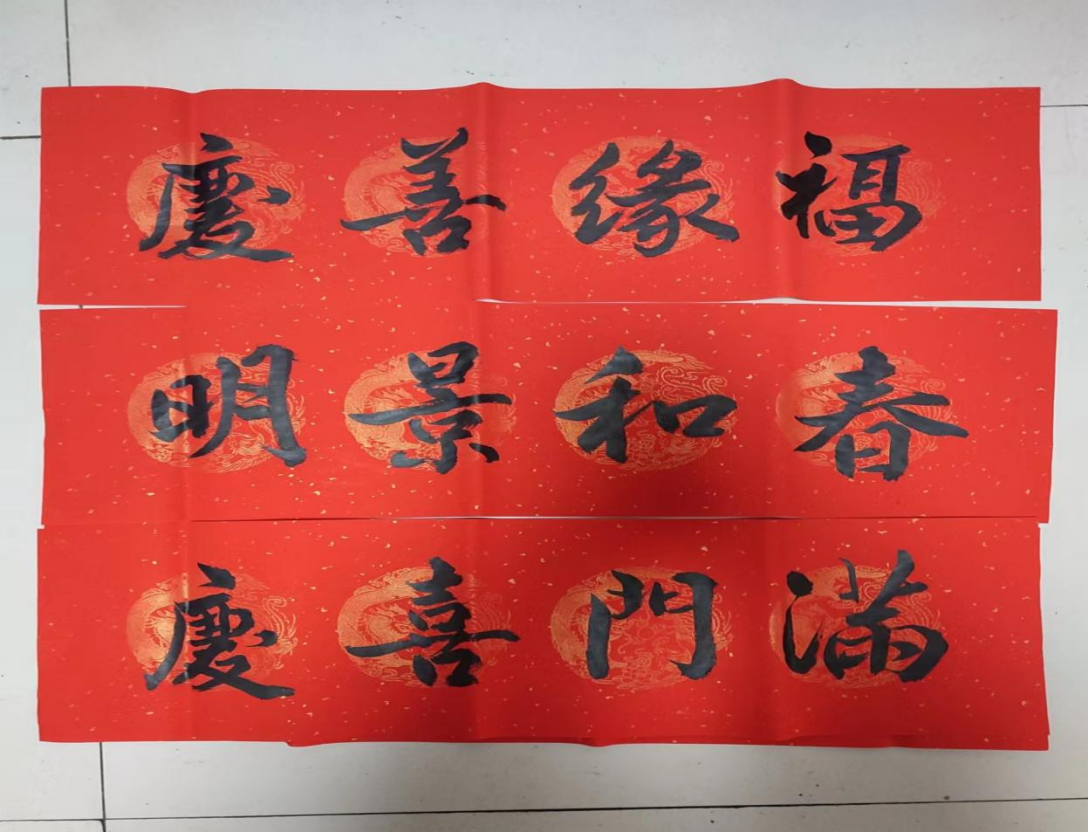 福缘善慶
春和景明
滿門喜慶